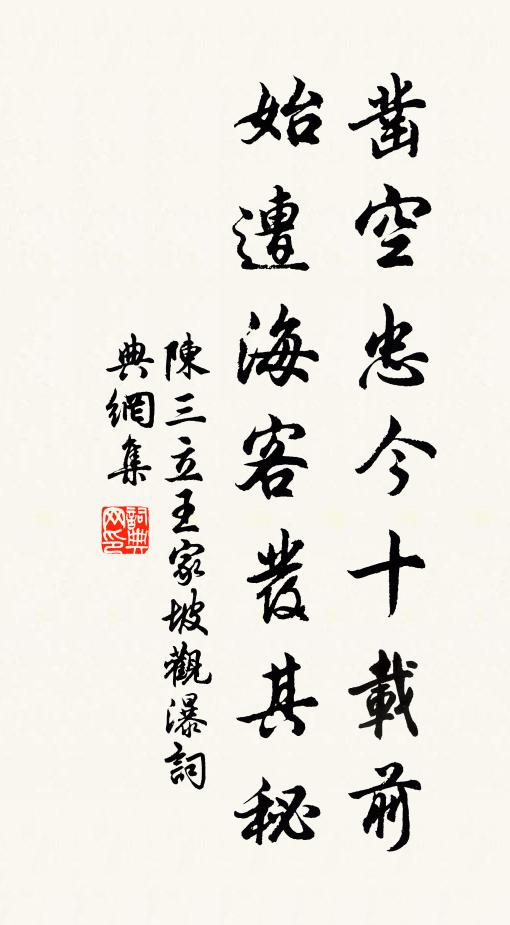 凿空忠今十載前
始遭海客發其秘
陳三立王家坡觀瀑詞
典網集
詞典
网印